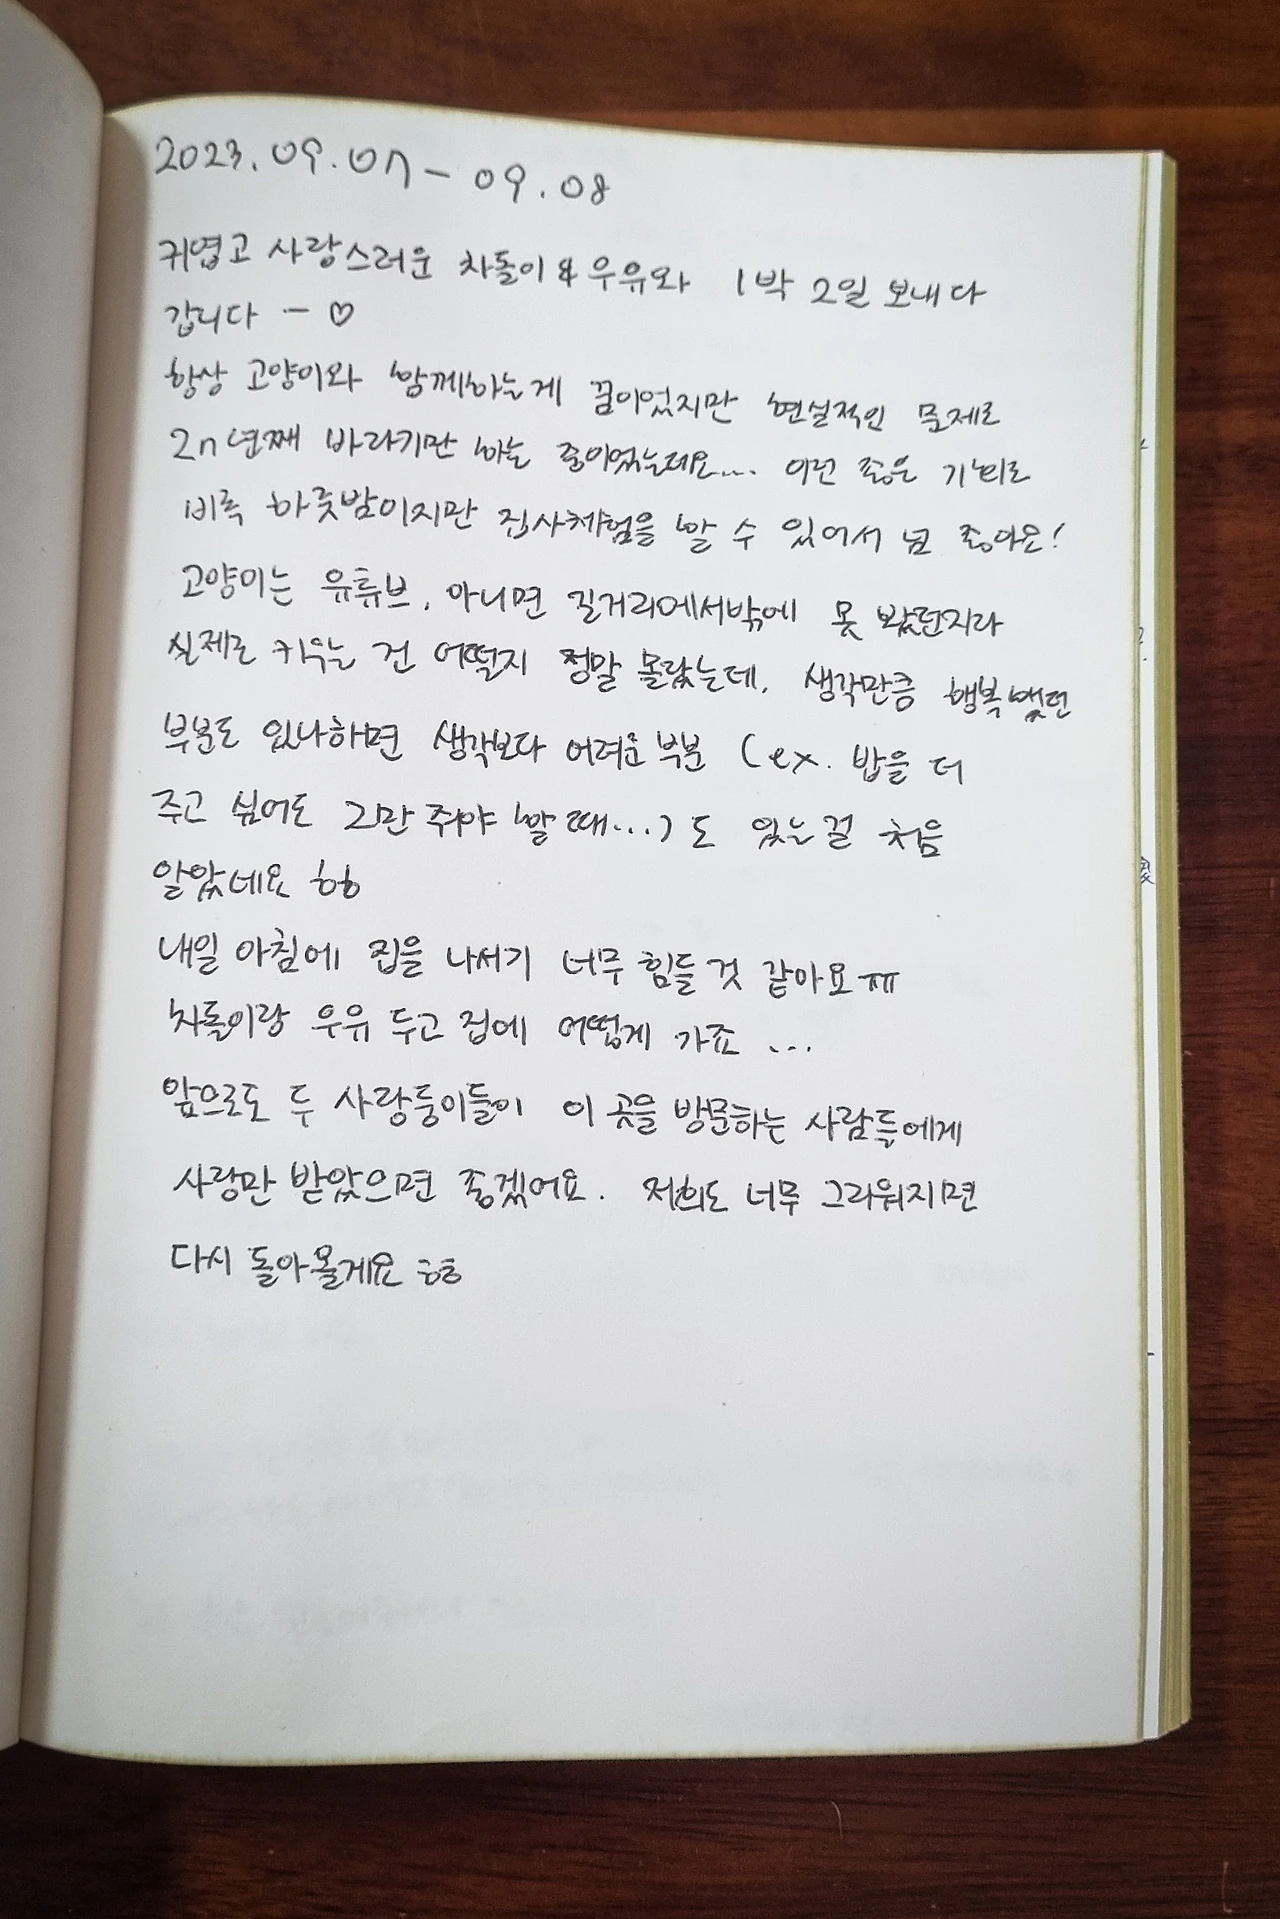 2023.09.07 - 09.08
귀엽고 사랑스러운 차돌이 & 우유와 1박 2일 보내다
갑니다 - ♡
항상 고양이와 함께하는게 꿈이었지만 현실적인 문제로
2n년째 바라기만 하는 중이었는데요... 이런 좋은 기회로
비록 하룻밤이지만 집사체험을 할 수 있어서 넘 좋아요!
고양이는 유튜브, 아니면 길거리에서밖에 못 봤던지라
실제로 키우는 건 어떨지 정말 몰랐는데, 생각만큼 행복했던
부분도 있나하면 생각보다 어려운 부분 (ex. 밥을 더
주고 싶어도 그만 줘야 할 때...)도 있는걸 처음
알았네요 ㅎㅎ
내일 아침에 집을 나서기 너무 힘들 것 같아요 ㅠㅠ
차돌이랑 우유 두고 집에 어떻게 가죠 ...
앞으로도 두 사랑둥이들이 이 곳을 방문하는 사람들에게
사랑만 받았으면 좋겠어요. 저희도 너무 그리워지면
다시 돌아올게요 ㅎㅎ